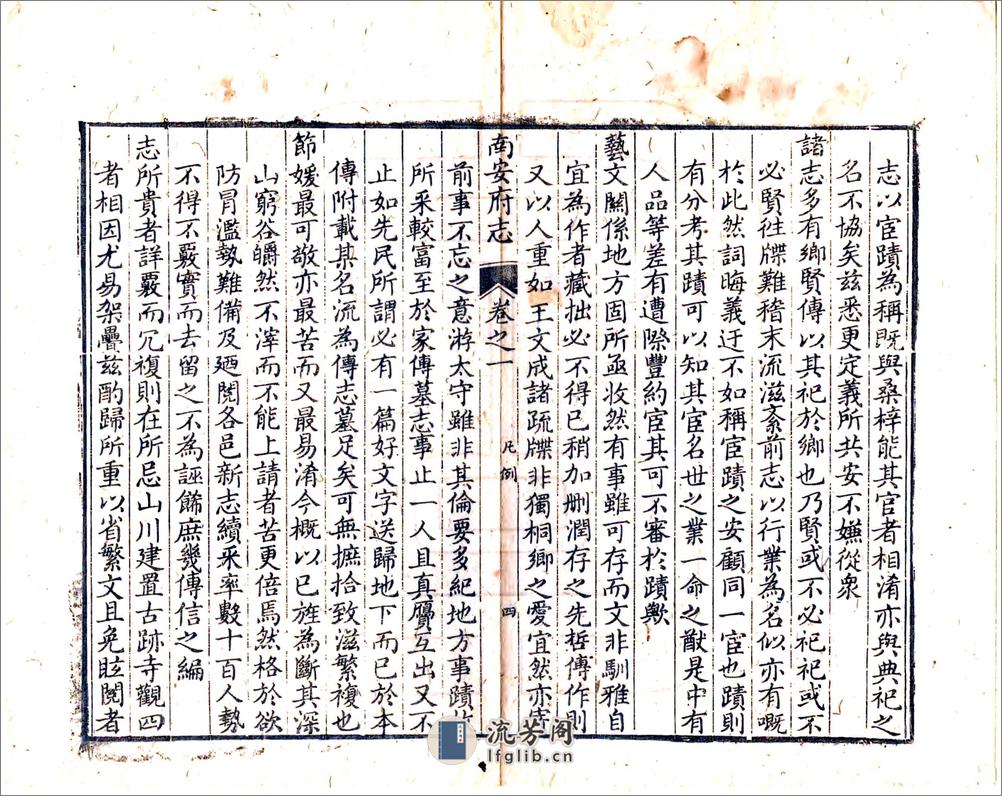 志以宦蹟為稱既與桑梓能其官者相淆亦與典祀之
名不協矣兹悉更定義所共安不嫌從衆
諸志多有鄉賢傳以其祀於鄉也乃賢或不必祀祀或不
必賢往牒難稽末流滋紊前志以行業為名似亦有嘅
於此然詞晦義迂不如稱宦蹟之安顧同一宦也蹟則
有分考其蹟可以知其宦名世之業一命之猷是中有
人品等差有遭際豐約宦其可不審於蹟歟
藝文關係地方固所亟收然有事雖可存而文非馴雅自
宜為作者藏拙必不得已稍加刪潤存之先哲傳作則
又以人重如王文成諸疏牒非獨桐鄉之愛宜然亦
南安府志 卷之一 凡例 四
前事不忘之意游太守雖非其倫要多紀地方事蹟
所采較富至於家傳墓志事止一人且真贗互出又不
止如先民所謂必有一篇好文字送歸地下而已於本
傳附載其名流為傳志墓足矣可無摭拾致滋繁複也
節媛最可敬亦最苦而又最易淆今概以已旌為斷其深
山窮谷皭然不滓而不能上請者苦更倍焉然格於欲
防冒濫勢難備及廼閱各邑新志續采率數十百人勢
不得不覈實而去留之不為誣餙庶幾傳信之編
志所貴者詳覈而冗複則在所忌山川建置古跡寺觀四
者相因尤易架疊兹酌歸所重以省繁文且免眩閱者
流芳阁
lfglib.cn